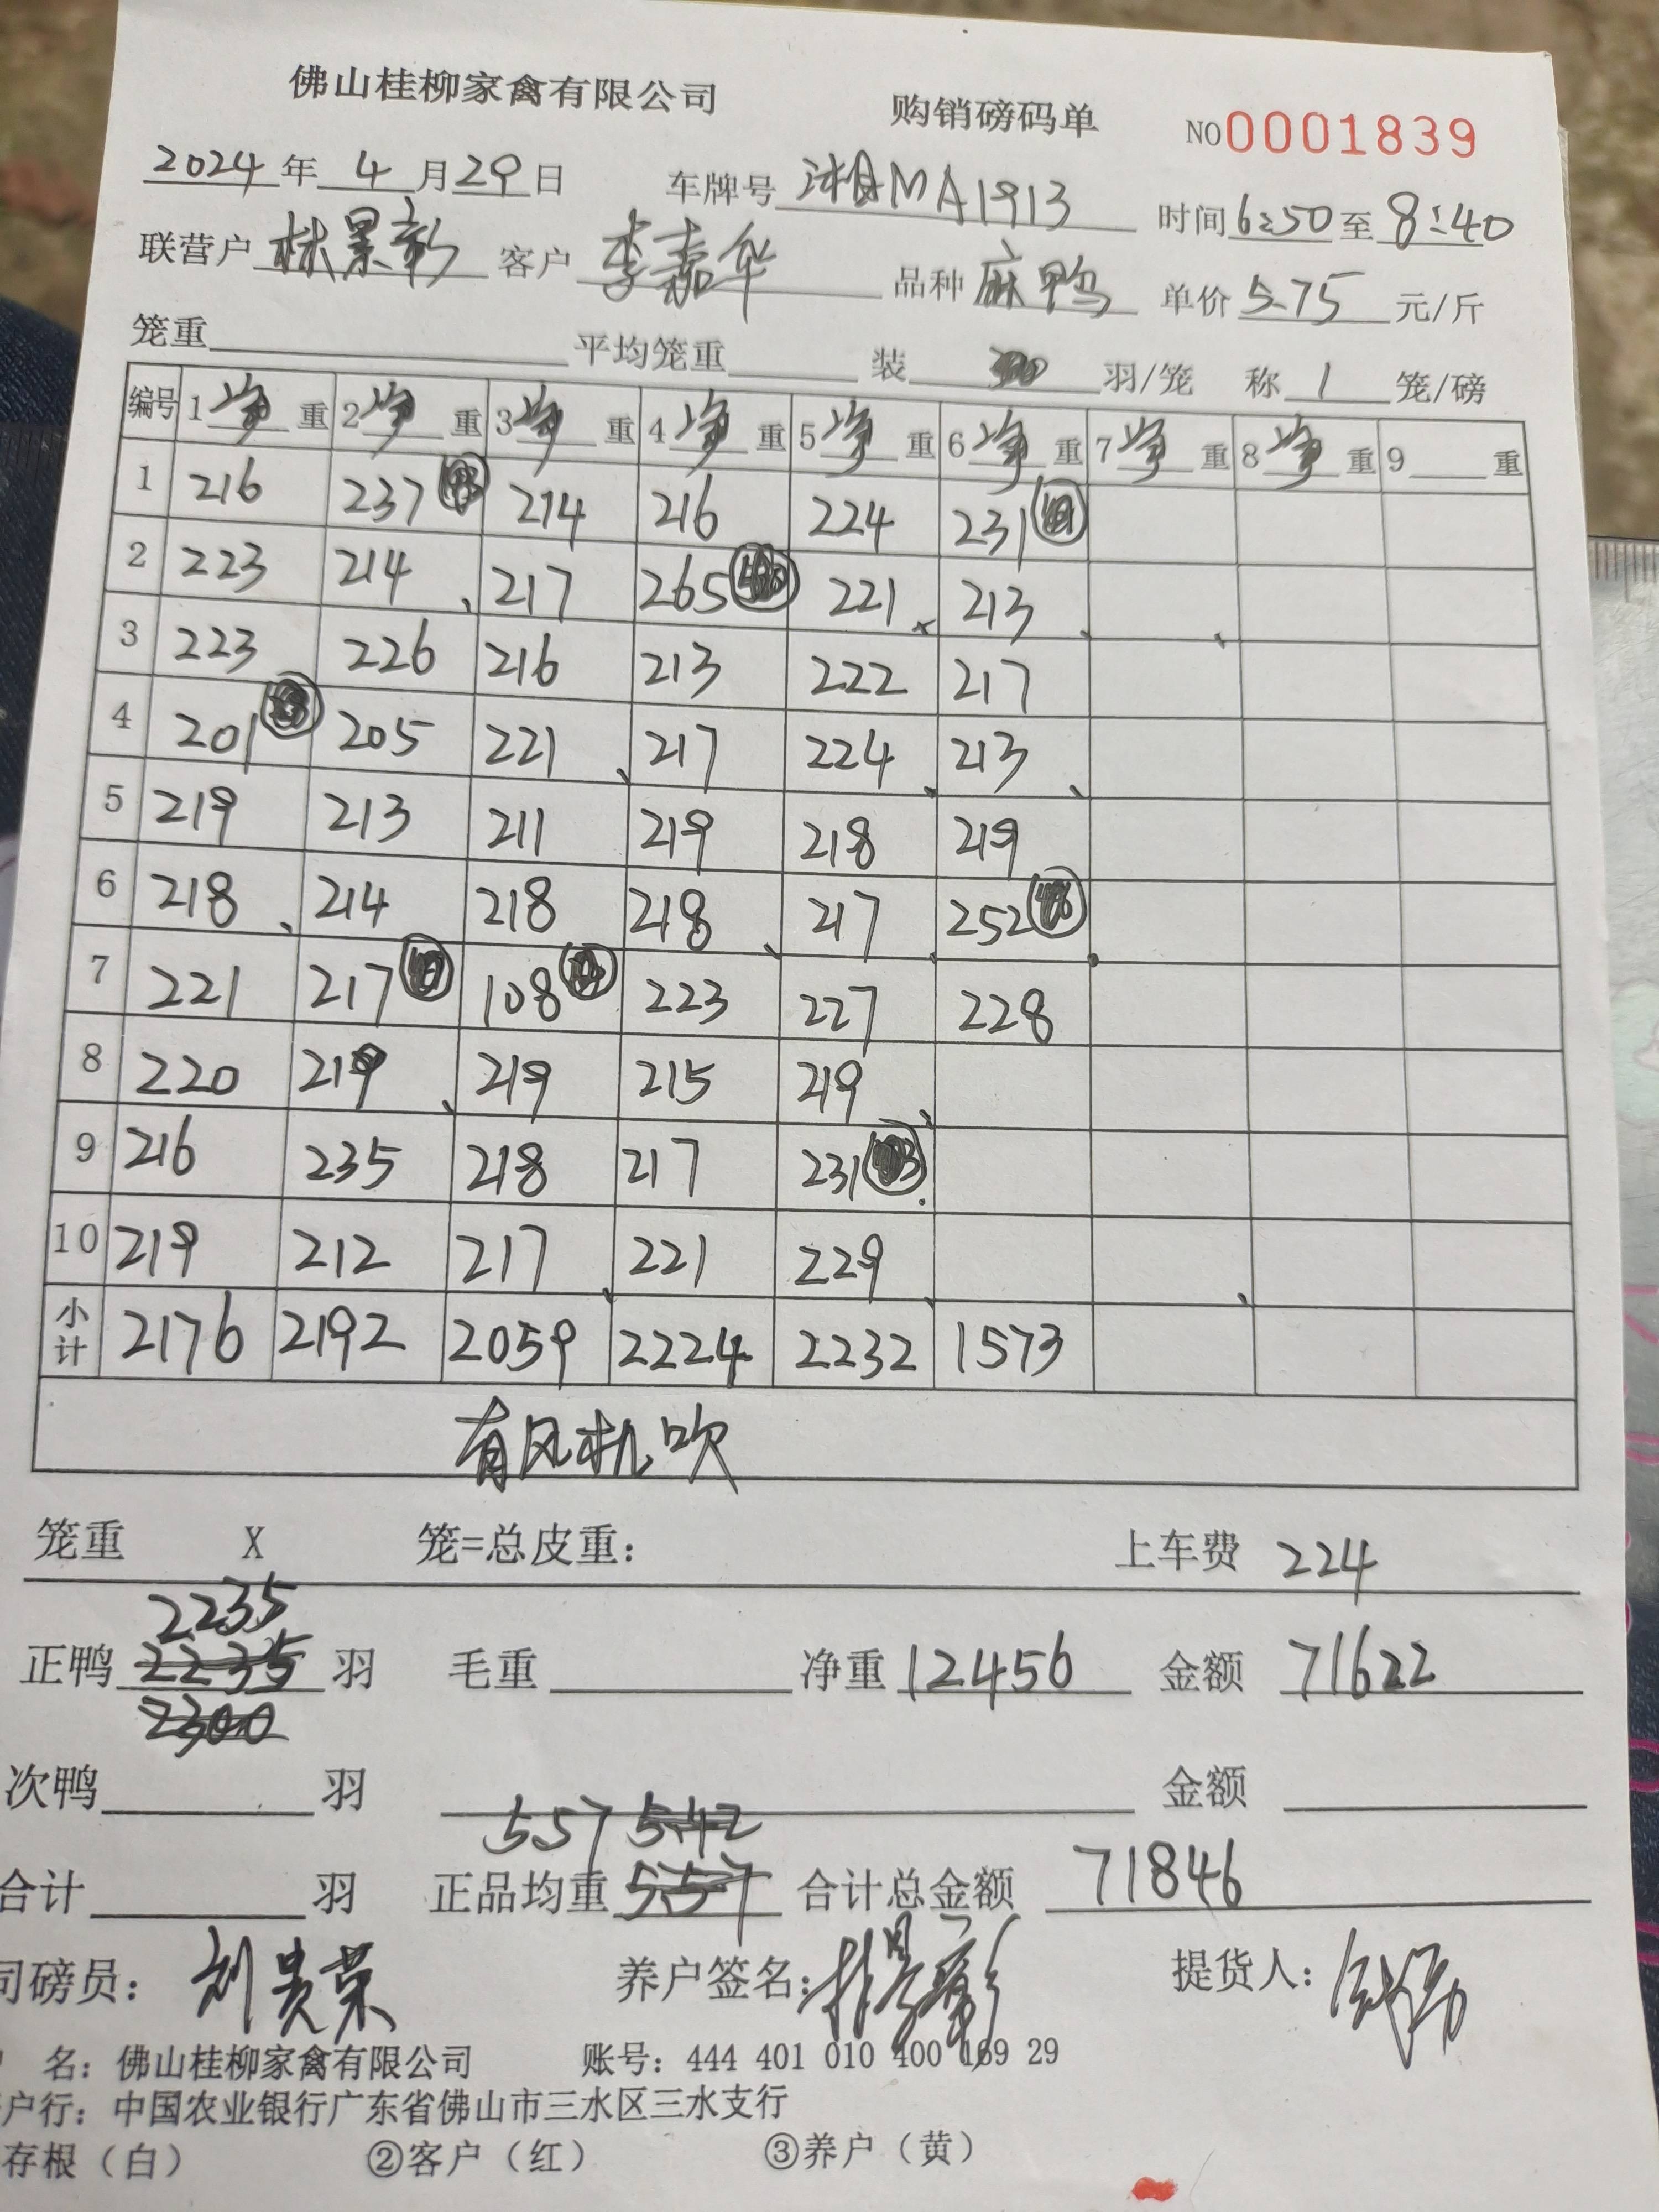 佛山桂柳家禽有限公司 购销磅码单 NO0001839
2024年4月29日 车牌号 湘MA1913 时间6:50至8:40
联营户 林景彰 客户 李嘉华 品种 麻鸭 单价 5.75 元/斤
笼重 平均笼重 装 羽/笼 称 1 笼/磅
编号 1净重 2净重 3净重 4净重 5净重 6净重 7净重 8净重 9 重
1 216 237 214 216 224 231
2 223 214 217 265 221 213
3 223 226 216 213 222 217
4 201 205 221 217 224 213
5 219 213 211 219 218 219
6 218 214 218 218 217 252
7 221 217 108 223 227 228
8 220 219 219 215 219
9 216 235 218 217 231
10 219 212 217 221 229
小计 2176 2192 2059 2224 2232 1573
有风机吹
笼重 X 笼=总皮重: 上车费 224
2235
正鸭 2235 羽 毛重 净重 12456 金额 71622
2300
次鸭 羽 金额
5.57 5.42
合计 羽 正品均重 5.57 合计总金额 71846
司磅员: 刘贵荣 养户签名: 林景彰 提货人:
名: 佛山桂柳家禽有限公司 账号: 444 401 010 400 169 29
户行: 中国农业银行广东省佛山市三水区三水支行
存根（白） ②客户（红） ③养户（黄）